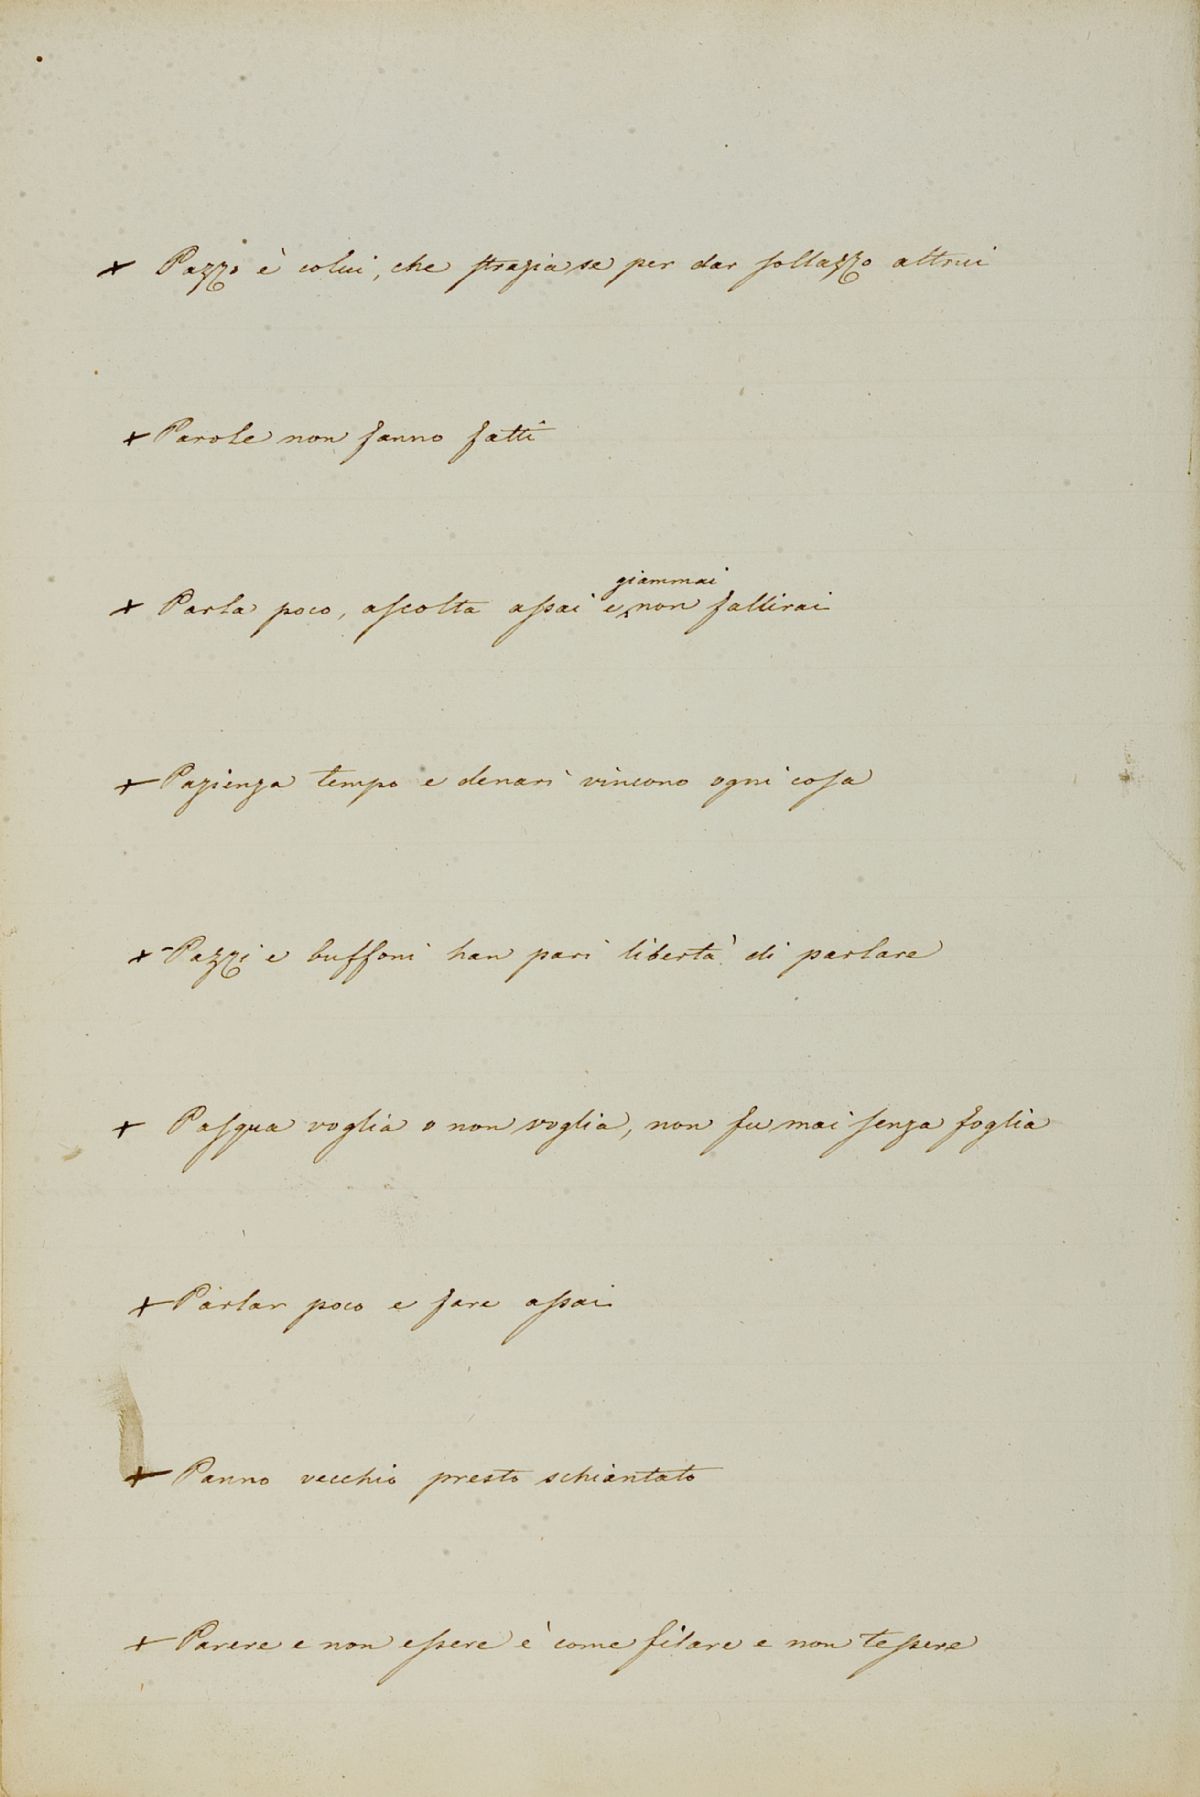 + Pazzo è colui, che strazia se per dar sollazzo altrui
+ Parole non fanno fatti
giammai
+ Parla poco, ascolta assai e non fallirai
+ Pazienza tempo e denari vincono ogni cosa
+ Pazzi e buffoni han pari libertà di parlare
+ Pasqua voglia o non voglia, non fu mai senza foglia
+ Parlar poco e fare assai
+ Panno vecchio presto schiantato
+ Parere e non essere è come filare e non tessere